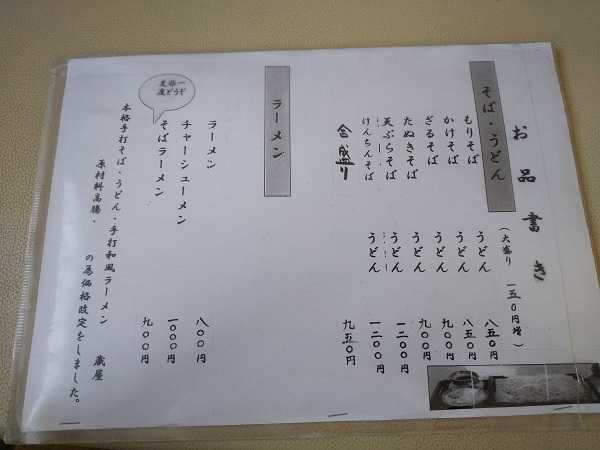 お品書き
そば・うどん
(大盛り 一五〇円増)
もりそば うどん 八五〇円
かけそば うどん 八五〇円
ざるそば うどん 九〇〇円
たぬきそば うどん 九〇〇円
天ぷらそば うどん 一二〇〇円
けんちんそば うどん 一二〇〇円
合盛り 九五〇円
ラーメン
ラーメン 八〇〇円
チャーシューメン 一〇〇〇円
そばラーメン 九〇〇円
一度
是非どうぞ
本格手打そば・うどん・手打和風ラーメン 蔵屋
原材料高騰・の為価格改定をしました。